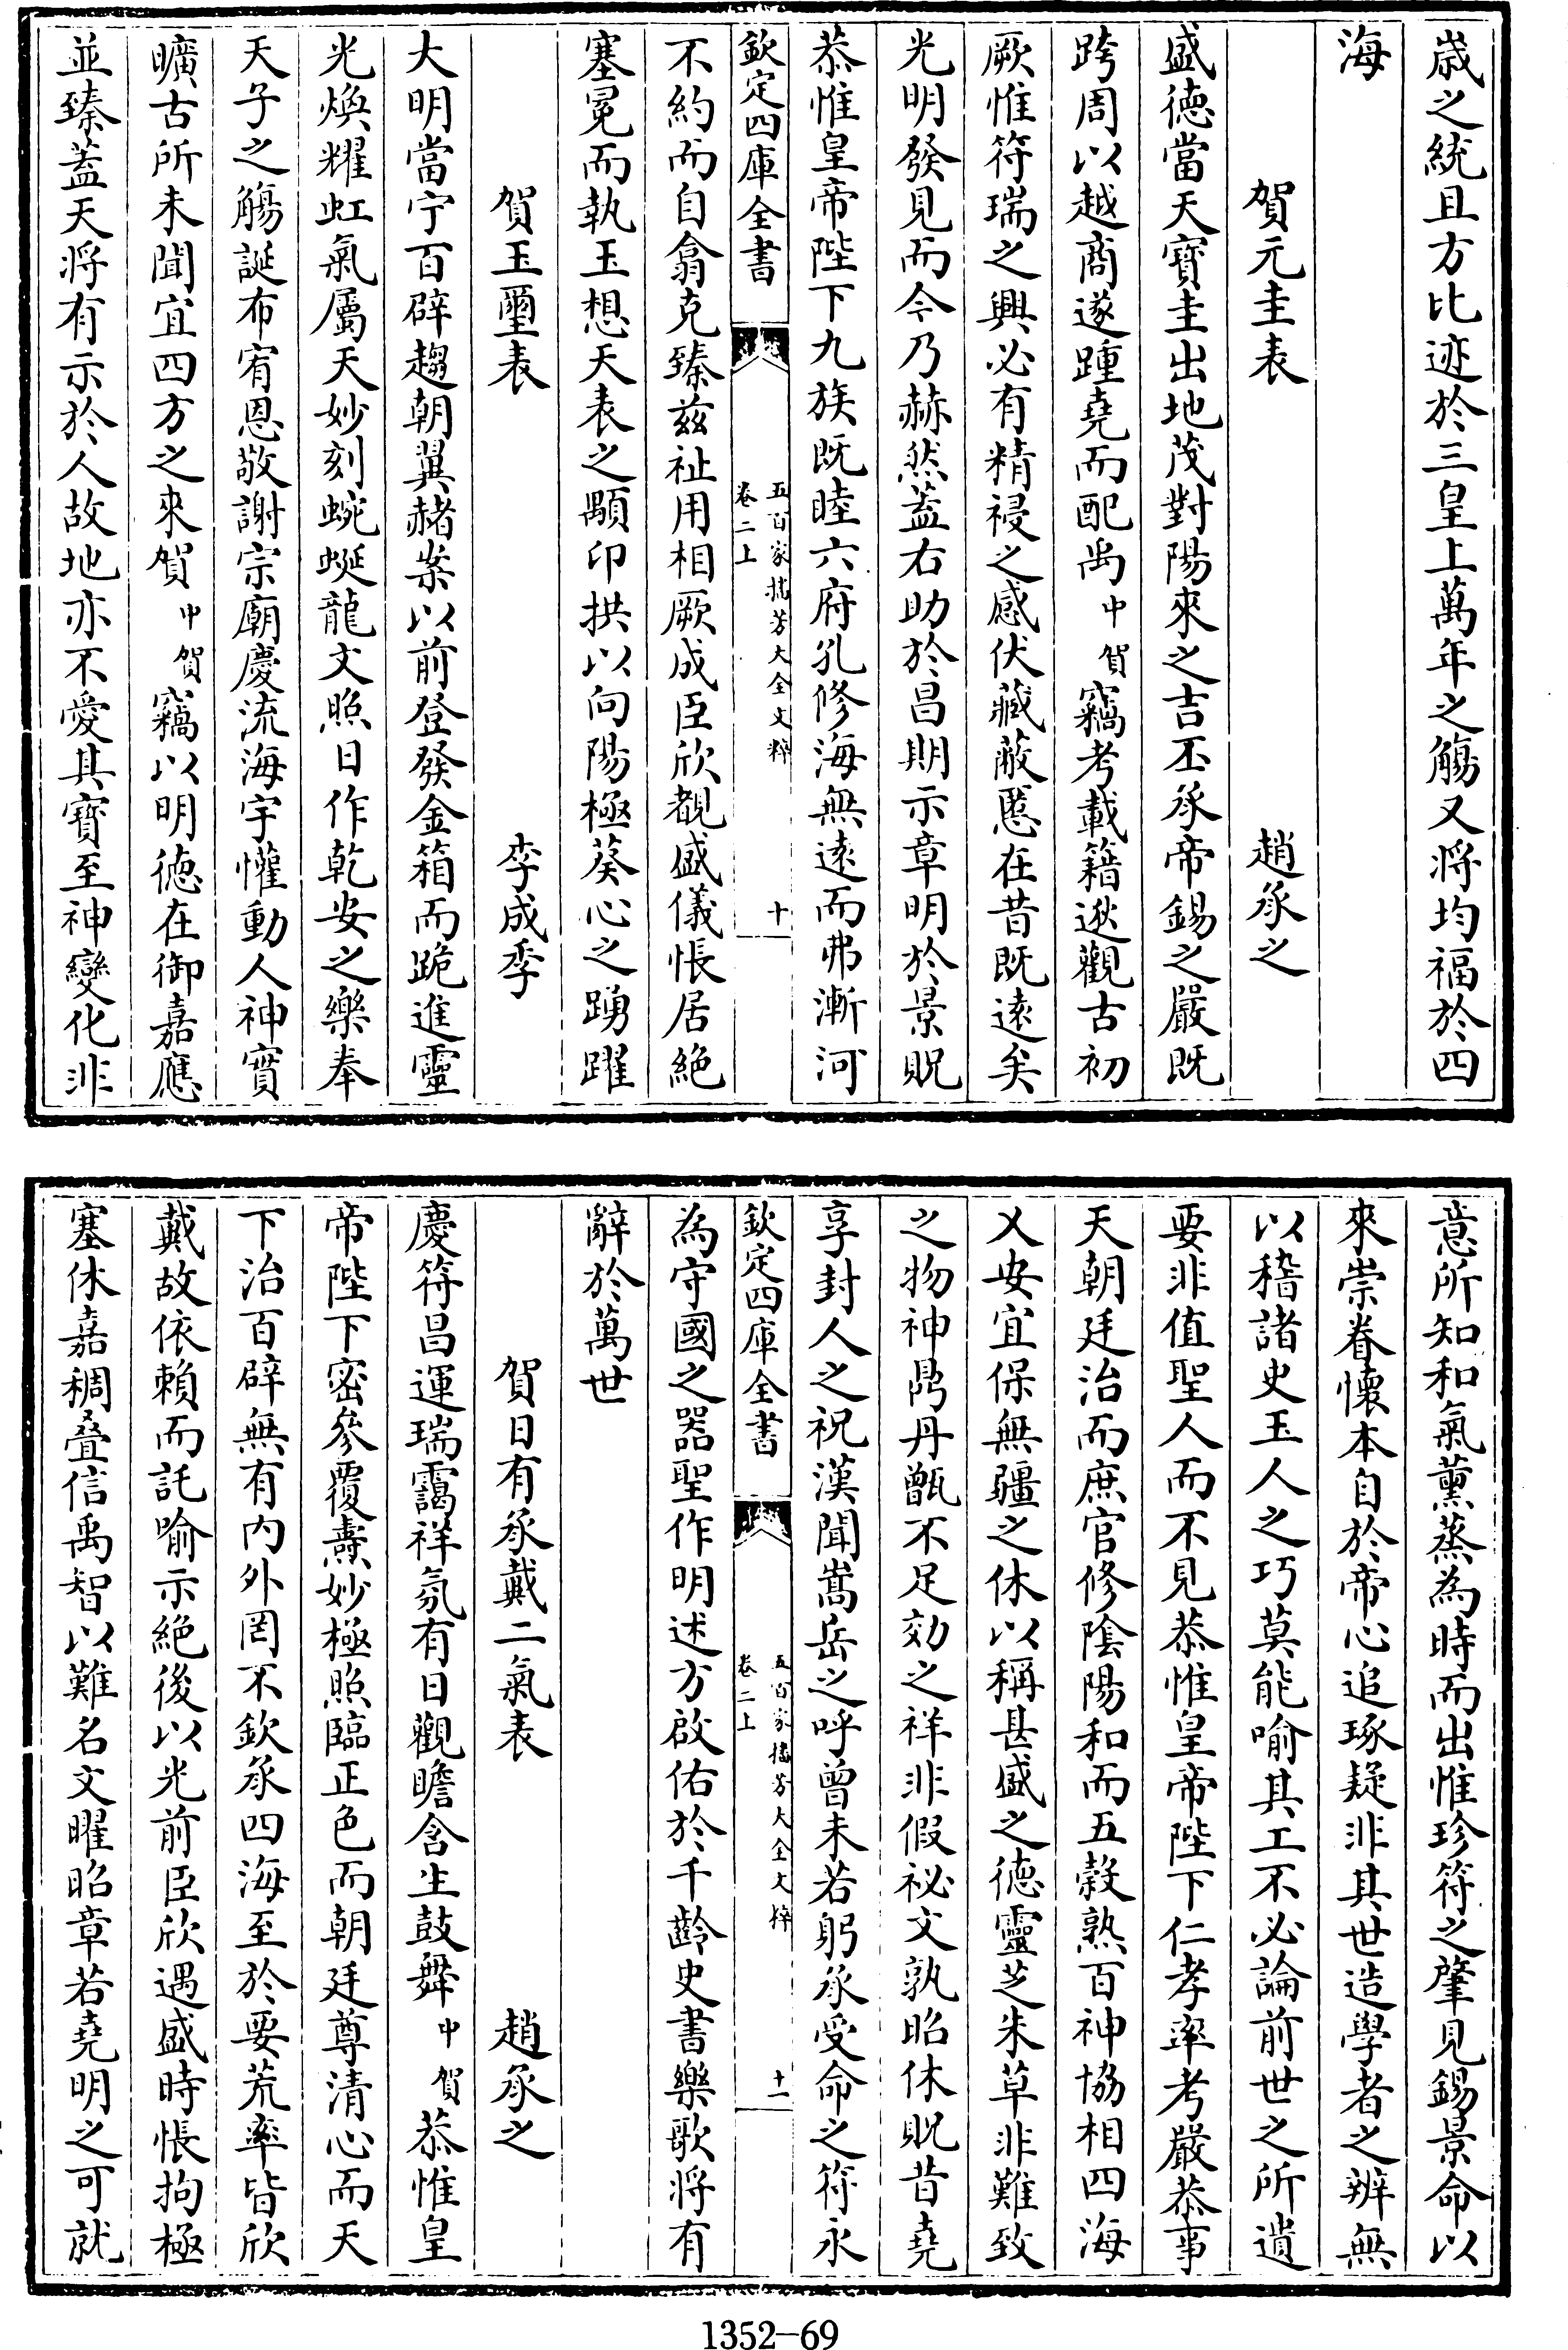 歳之統且方比迹於三皇上萬年之觴又將均福於四
海
賀元圭表　趙承之
盛德當天寳圭出地茂對陽來之吉丕承帝錫之嚴既
跨周以越商遂踵堯而配禹中賀竊考載籍逖觀古初
厥惟符瑞之興必有精祲之感伏藏蔽慝在昔既逺矣
光明發見而今乃赫然葢右助於昌期示章明於景貺
恭惟皇帝陛下九族既睦六府孔修海無逺而弗漸河
欽定四庫全書　五百家播芳大全文粹卷二上　十
不約而自翕克臻兹祉用相厥成臣欣覩盛儀悵居絶
塞冕而執玉想天表之顒卬拱以向陽極葵心之踴躍
賀玉璽表　李成季
大明當宁百辟趨朝翼赭案以前登發金箱而跪進靈
光煥耀虹氣屬天妙刻蜿蜒龍文照日作乾安之樂奉
天子之觴誕布宥恩敬謝宗廟慶流海宇懽動人神實
曠古所未聞宜四方之來賀中賀竊以明德在御嘉應
並臻葢天將有示於人故地亦不愛其寳至神變化非
意所知和氣薰蒸為時而出惟珍符之肇見錫景命以
來崇眷懐本自於帝心追琢疑非其世造學者之辨無
以稽諸史玉人之巧莫能喻其工不必論前世之所遺
要非值聖人而不見恭惟皇帝陛下仁孝率考嚴恭事
天朝廷治而庶官修陰陽和而五榖熟百神協相四海
乂安宜保無疆之休以稱甚盛之德靈芝朱草非難致
之物神鼎丹甑不足効之祥非假祕文孰昭休貺昔堯
享封人之祝漢聞嵩岳之呼曾未若躬承受命之符永
欽定四庫全書　五百家播芳大全文粹卷二上　十一
為守國之器聖作明述方啟佑於千齡史書樂歌將有
辭於萬世
賀日有承戴二氣表　趙承之
慶符昌運瑞靄祥氛有日觀瞻含生鼓舞中賀恭惟皇
帝陛下密參覆燾妙極照臨正色而朝廷尊清心而天
下治百辟無有内外罔不欽承四海至於要荒率皆欣
戴故依賴而託喻示絶後以光前臣欣遇盛時悵拘極
塞休嘉稠疊信禹智以難名文曜昭章若堯明之可就
1352-69